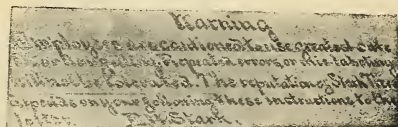 Warning
Employees are cautioned to use greatest care
Repeated errors, or mis-labeling
will not be tolerated. The reputation of Stark Trees
depends on your following these instructions to the
letter. Stark.